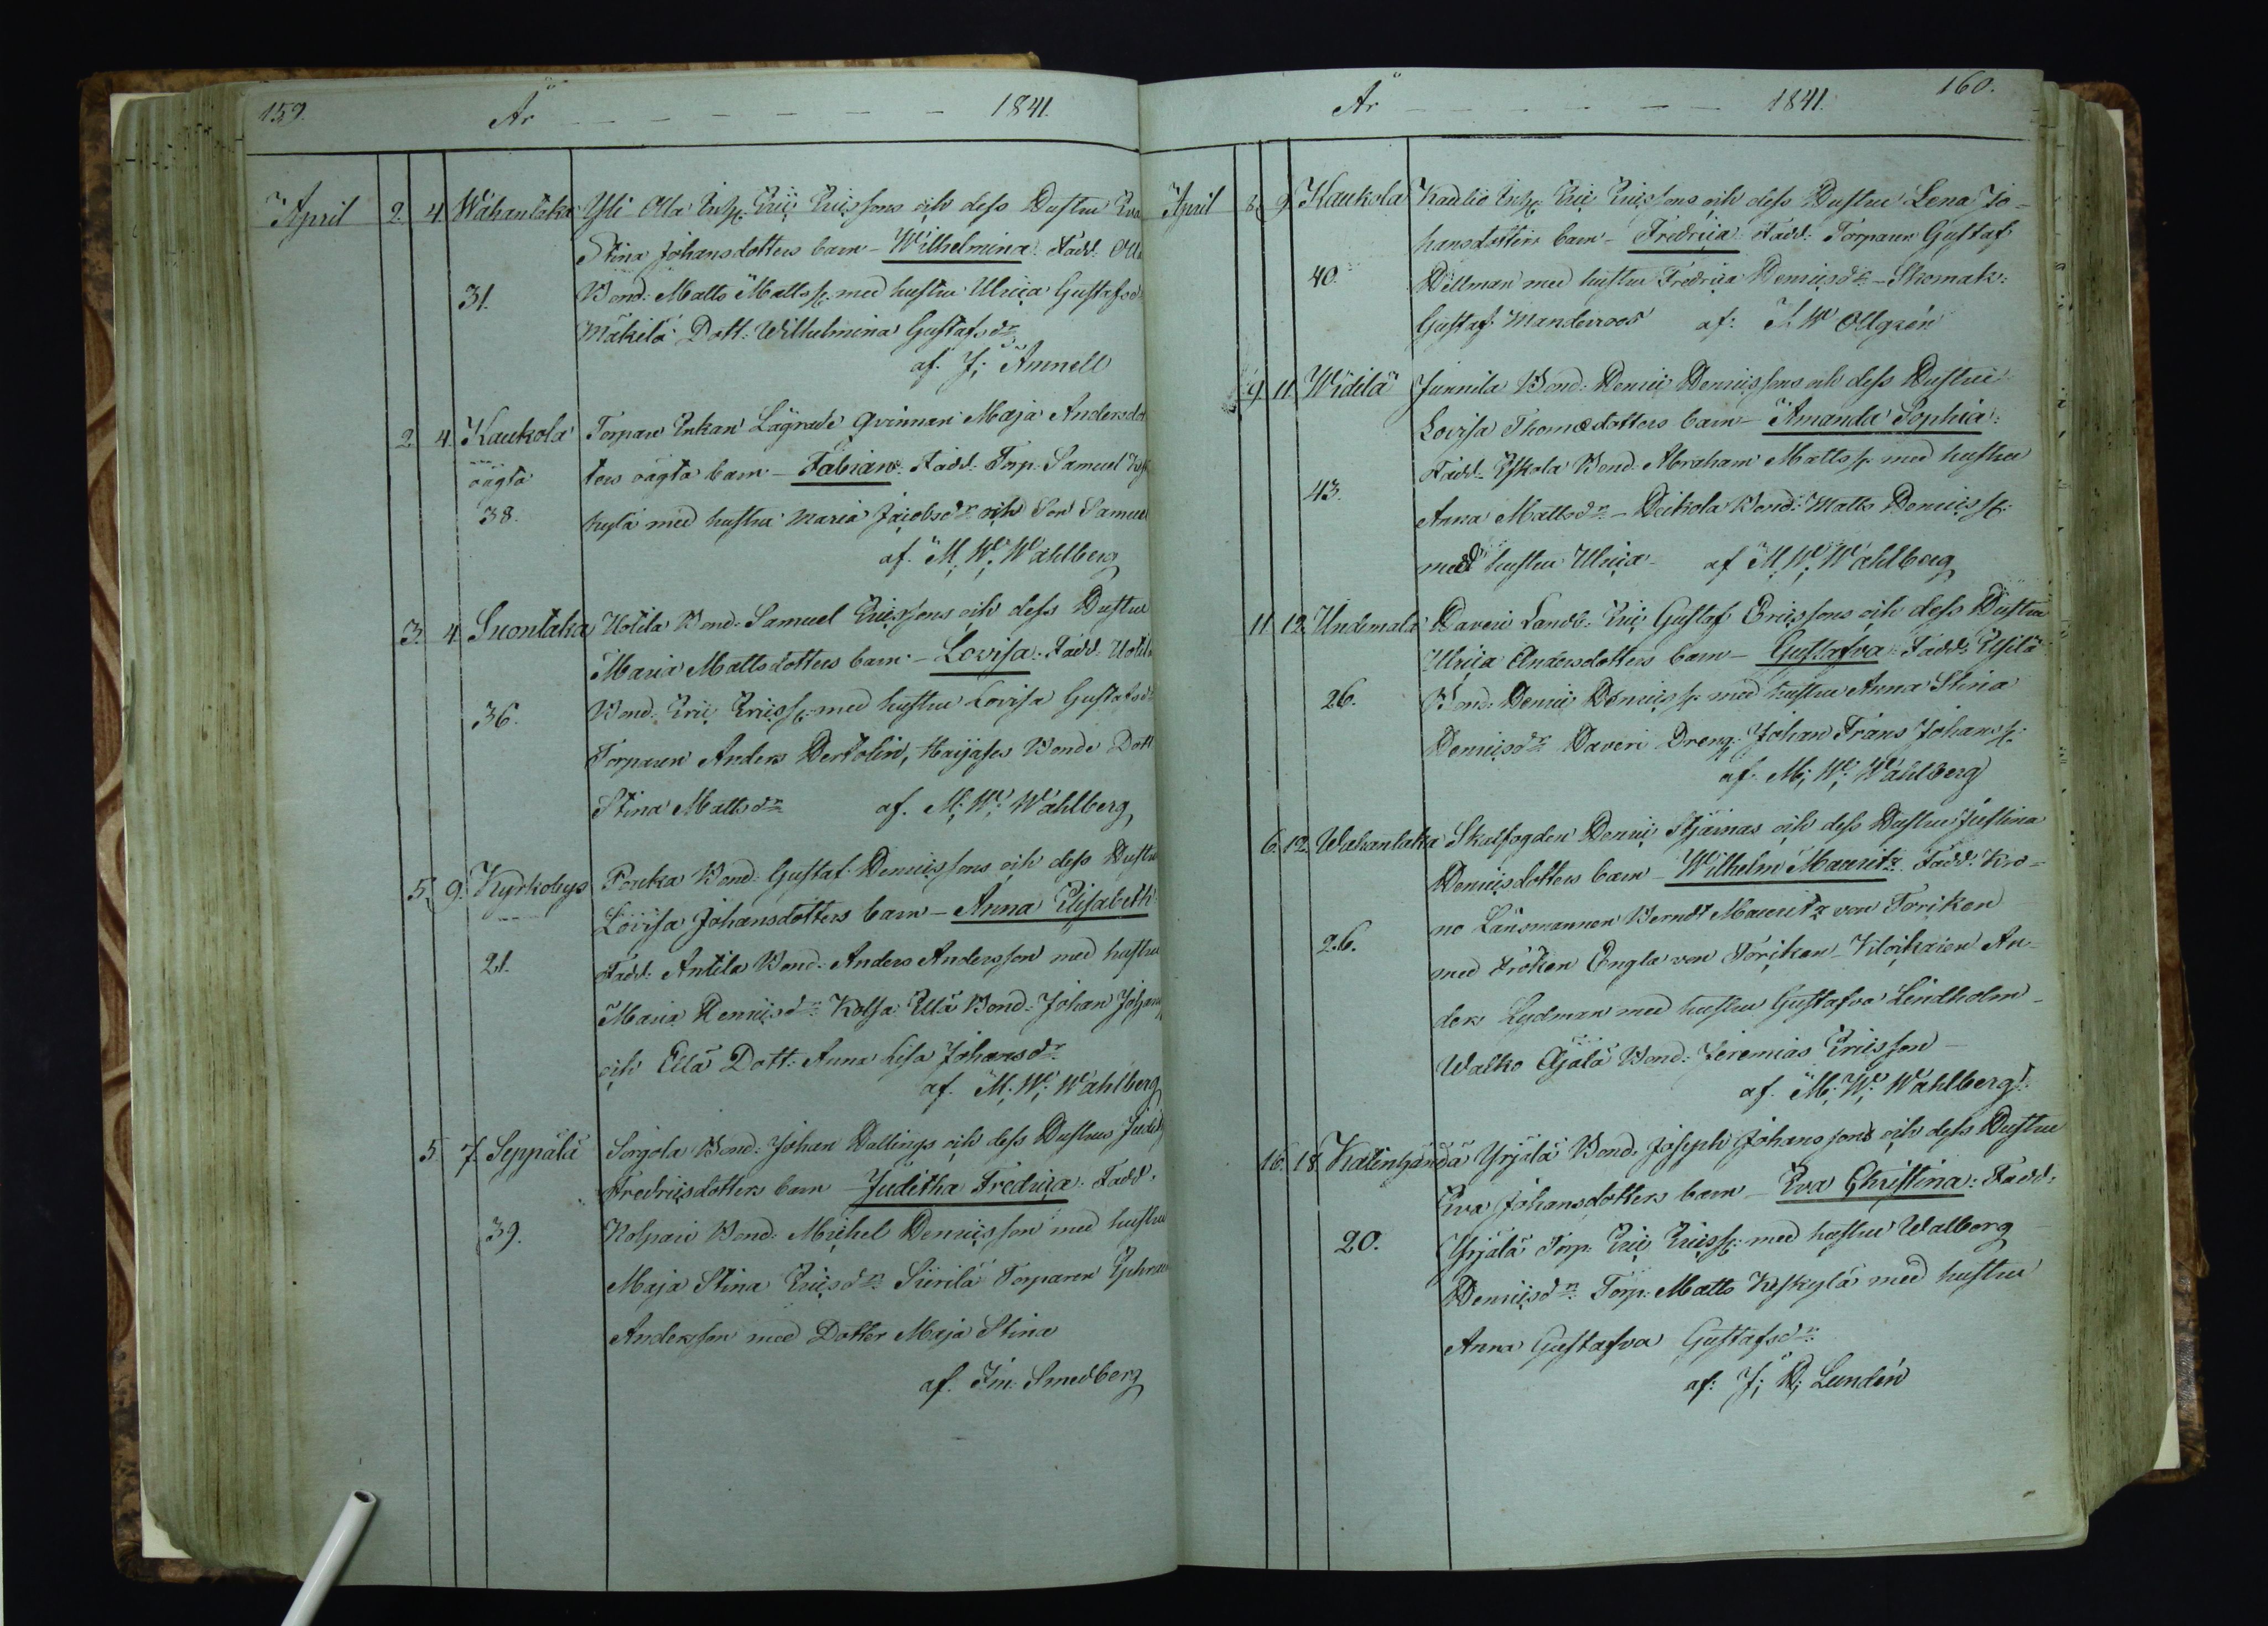 159. År 1841.
April 2. 4. Wahantaka Yli Olla Inh. Eric Ericssons och dess Hustru Eva
Stina Johansdotters barn – Wilhelmina: Fadd: Olla
31. Bond: Matts Mattss: med hustru Ulrica Gustafsd:r
Mäkilä Dott: Wilhelmina Gustafsd:r
af. J: Amnell
2. 4. Kaukola Torpare Enkan Lägrade qvinnan Maja Andersdot
oägta ters oägta barn – Fabian: Fadd: Torp: Samuel Kesk
38. kylä med hustru Maria Jacobsd:r och Son Samuel
af. M. W: Wahlberg
3. 4. Suontaka Uotila Bond: Samuel Ericssons och dess Hustru
Maria Mattsdotters barn – Lovisa: Fadd: Uotila
36. Bond: Eric Ericss: med hustru Lovisa Gustafsd:r
Torparen Anders Bertolin, Bonde Dott
Stina Mattsd:r af. M: W: Wahlberg
5. 9. Kyrkobys Pouka Bond: Gustaf Henricssons och dess Hustru
Lovisa Johansdotters barn – Anna Elisabeth
21. Fadd: Antila Bond: Anders Andersson med hustru
Maria Henricsd:r Kolsa Ellä Bond: Johan Johans
och Ellä Dott: Anna Lisa Johansd:r
af. M: W: Wahlberg
5. 7. Seppälä Sorgola Bond: Johan Hallings och dess Hustrus Judith
Fredricsdotters barn – Juditha Fredrica: Fadd:
39. Kolpari Bond: Michel Henricsson med hustru
Maja Stina Ericsd:r Siirilä Torparen Ephraim
Andersson med Dotter Maja Stina
af. Im: Smedberg
År 1841. 160.
April 8. 9. Kaukola Kadlio Inh: Eric Ericssons och dess Hustru Lena Jo-
hansdotters barn – Fredrica: Fadd: Torparen Gustaf
40. Hellman med hustru Fredrica Henricsd:r – Skomak:
Gustaf Manderroos af: A W Ollgrén
9. 11. Widilä Junnila Bond: Henric Henricssons och dess Hustru
Lovisa Thomædotters barn – Amanda Sophia:
Fadd: Eskola Bond: Abraham Mattss: med hustru
43. Anna Mattsd:r – Heikola Bond: Matts Henricss:
med hustru Ulrica – af M. W: Wahlberg
11. 12. Undemala Haveri Landb: Eric Gustaf Ericssons och dess Hustru
Ulrica Andersdotters barn – Gustafva: Fadd:
26. Bond: Henric Henricss: med hustru Anna Stina
Henricsd:r Haveri Dreng: Johan Frans Johanss:
af. M: W: Wahlberg
6. 12. Wahantaka Skalfogden Henric Stjärnas och dess Hustru Justina
Henricsdotters barn – Wilhelm Mauritz: Fadd: Kro-
no Länsmannen Berndt Mauritz von Foriken
26. med Fröken Engla von Foriken – An-
ders Lydman med hustru Gustafva Lindholm –
Walko Äjälä Bond: Jeremias Ericsson –
af. M: W: Wahlberg:
16. 18. Katinhändä Yrjälä Bond: Joseph Johanssons och dess Hustru
Eva Johansdotters barn – Eva Christina: Fadd:
20. Yrjälä Torp: Eric Ericss: med hustru Walborg
Henricsd:r Torp: Matts Keskylä med hustru
Anna Gustafva Gustafsd:r
af: J: H: Lundén